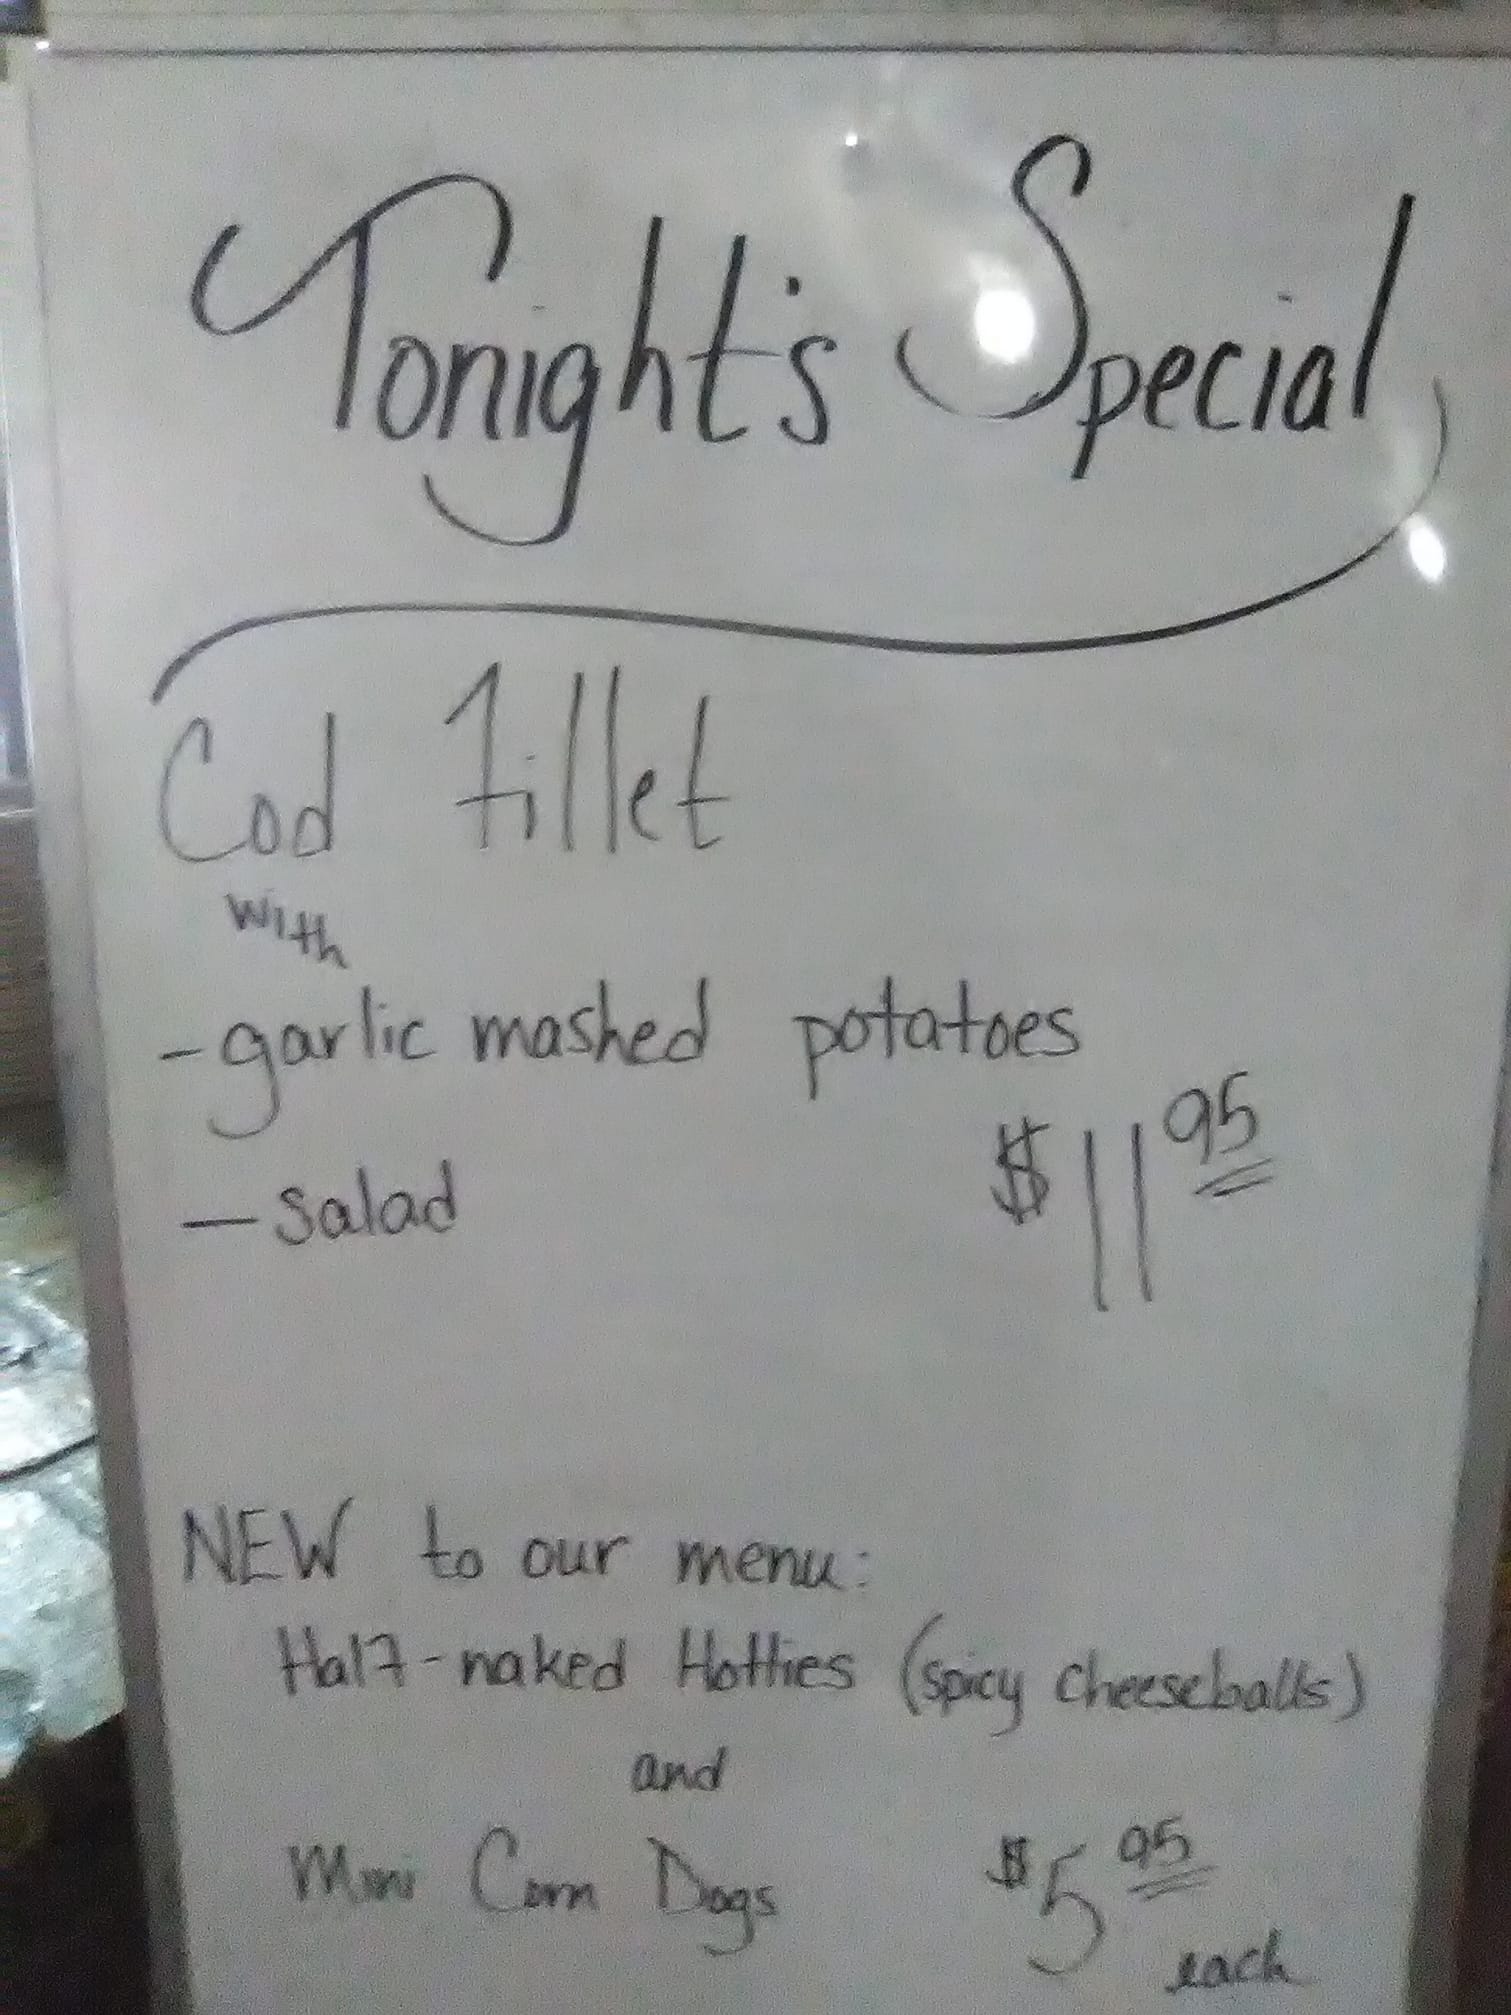 Tonight's Special
Cod fillet
with
- garlic mashed potatoes
$11 95
- salad
NEW to our menu:
Half-naked Hotties (spicy cheeseballs)
and
Mini Corn Dogs $5 95
each